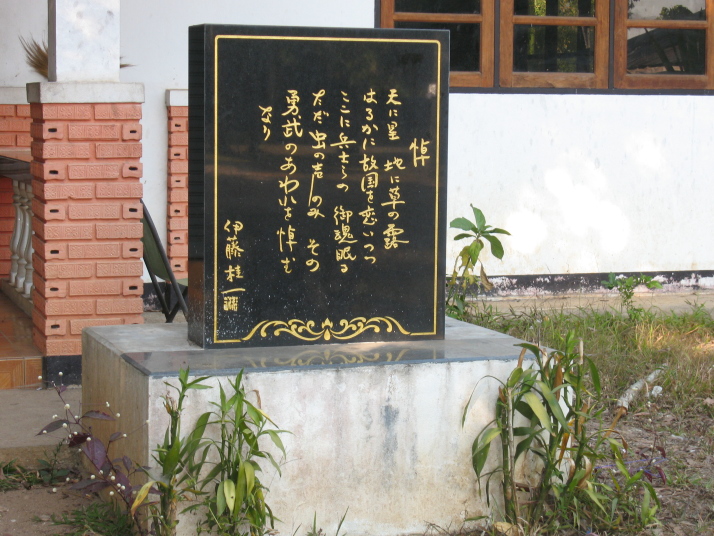 悼
天に星　地に草の露
はるかに故国を恋いつつ
ここに兵士らの　御魂眠る
ただ虫の声のみ　その
勇武のあわれを　悼む
なり
伊藤桂一